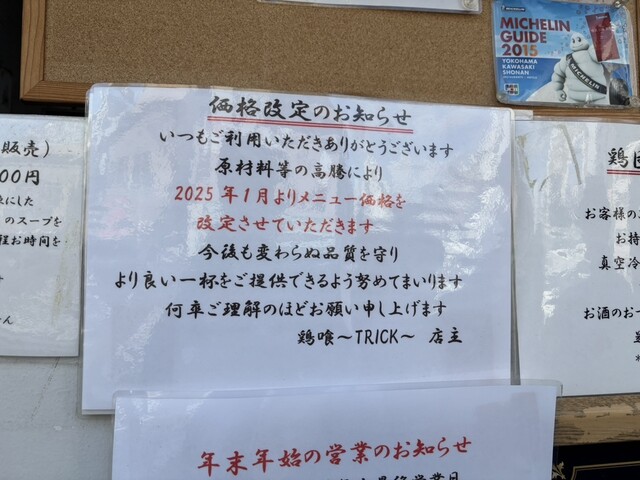 MICHELIN
GUIDE
2015
YOKOHAMA
KAWASAKI
SHONAN
MICHELIN
価格改定のお知らせ
いつもご利用いただきありがとうございます
原材料等の高騰により
2025年1月よりメニュー価格を
改定させていただきます
今後も変わらぬ品質を守り
より良い一杯をご提供できるよう努めてまいります
何卒ご理解のほどお願い申し上げます
鶏喰～TRICK～ 店主
販売）
00円
にした
のスープを
程お時間を
鶏
お客様の
お持
真空冷
お酒のお
年末年始の営業のお知らせ